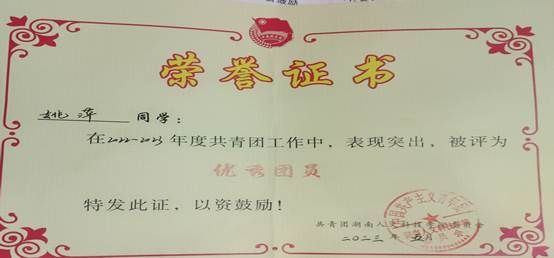 荣誉证书
姚萍 同学:
在2022-2023年度共青团工作中,表现突出,被评为
优秀团员
特发此证,以资鼓励!
共青团湖南人文科技学院委员会
二〇二三年 五月